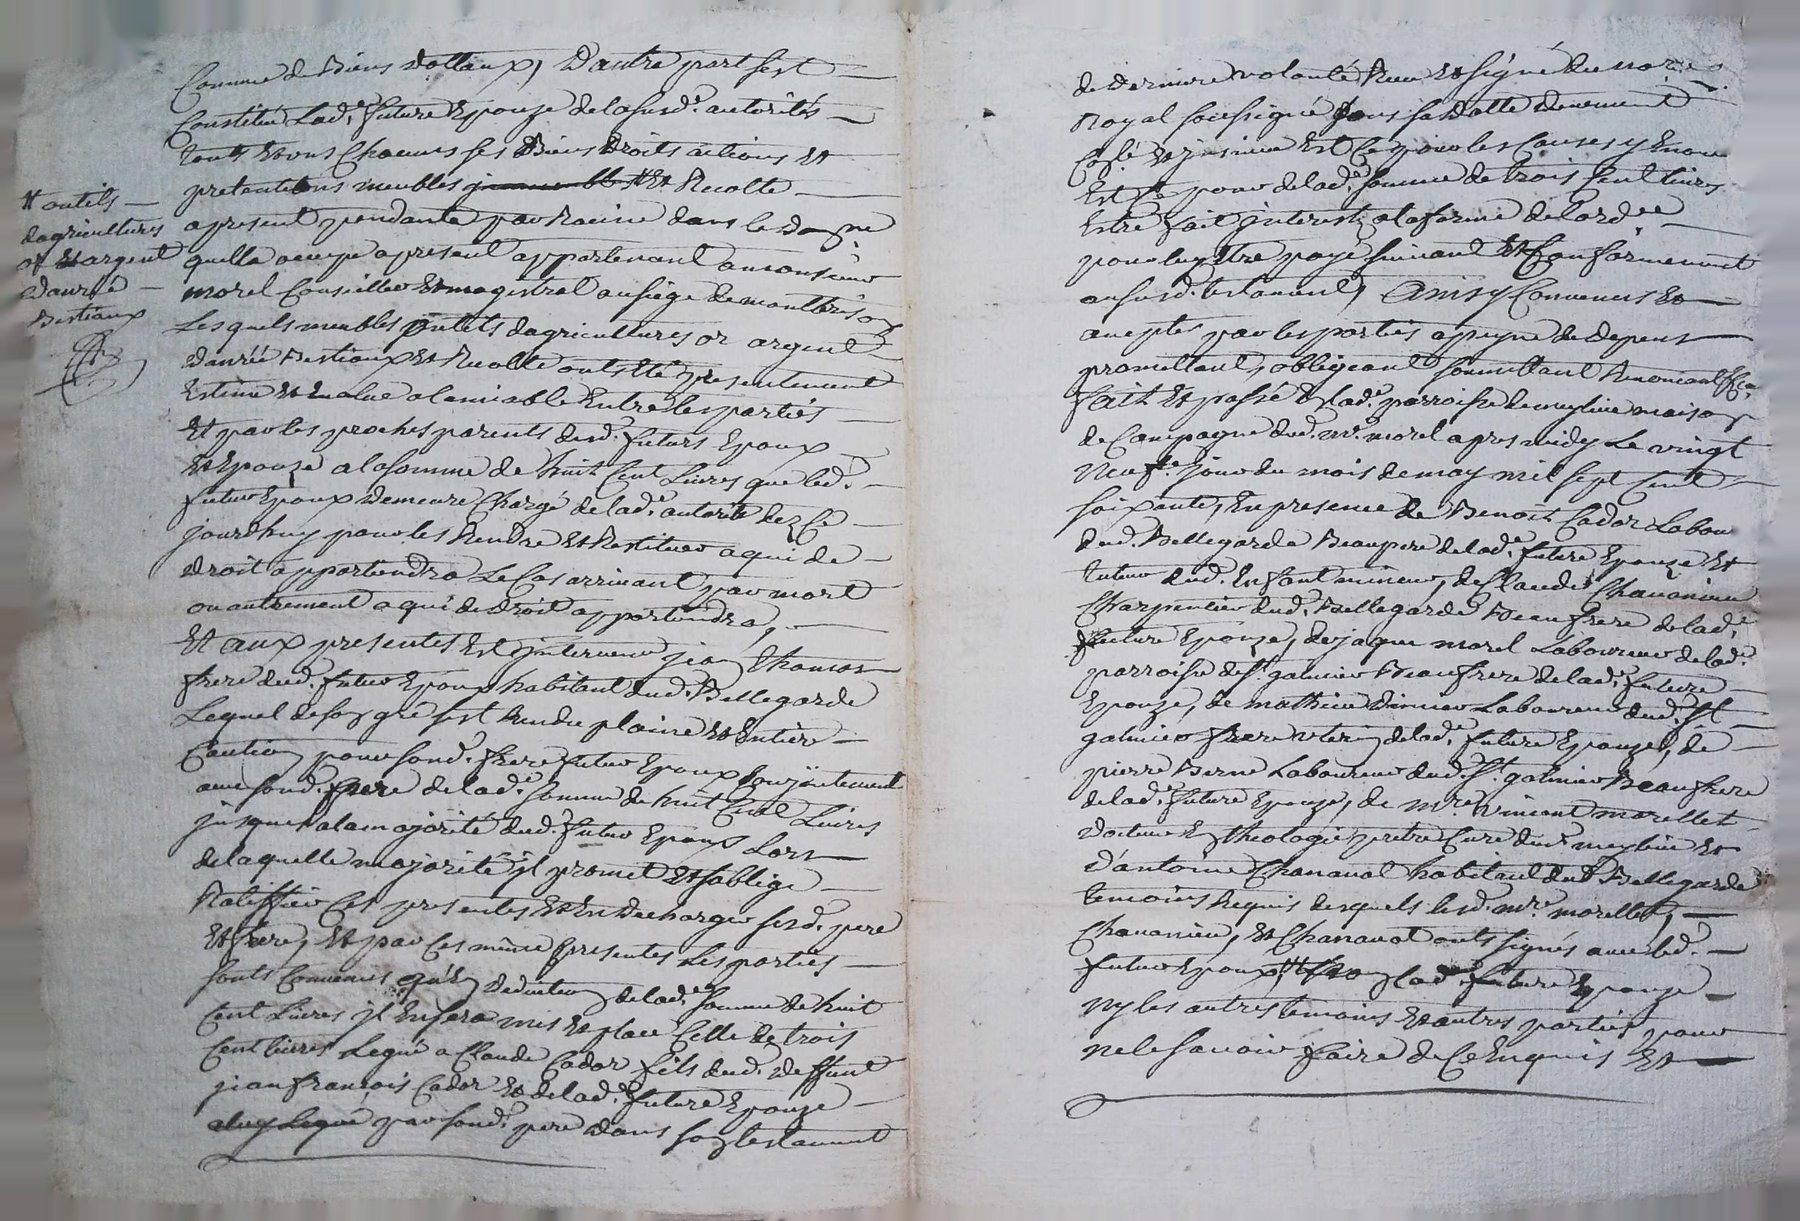 Comme de Biens dottaux, D'autre part s'est
Constitué Lad.e future Epouze de la susd.e autorités
touts et uns Chacuns ses Biens Droits actions et
pretentions meubles immeubles # et Recolte
# outils
dagricultures
or et argent
danrée
Bestiaux
apresent pendante par Racine dans le Domne
quelle occupe apresent appartenant a monsieur
morel Conseiller et magistrat au siege de montbrison
Lesquels meubles outils dagricultures or argent
danrée Bestiaux et Recolte onts été presentement
Estimé et Evalué alamiable Entre les parties
Et par les proches parents desd. futurs Epoux
et Epouze a la somme de huit Cent Livres que led.
futur Epoux Demeure Chargé de lad.e autorité dez Ce
jourdhuy pour les Rendre et Restituer a qui de
droit appartiendra Le Cas arrivant par mort
ou autrement a qui de Droit appartiendra,
Et aux presentes Est intervenu jean thomas
frere dud. futur Epoux habitant dud. Bellegarde
Lequel de son gré s'est Rendu plaine et Entier
Caution pour sond. frere futur Epoux Conjointement
avec sond. pere de lad.e somme de huit Cent Livres
jusques a la majorité dud. futur Epoux Lors
de laquelle majorité il promet et soblige
Ratiffier Ces presentes et En Decharger sesd. pere
et frere, et par Ces même presentes Les parties
sonts Convenues qu'en Deduction de lad.e somme de huit
Cent Livres il En sera mis En place Celle de trois
Cent Livres Legué a Claude Cador fils dud. Deffunt
jean françois Cador et de lad.e future Epouze
aluy Legué par sond. pere dans son testament
de Derniere volonté Reçu et signé du no.re
Royal soussigné sous sa Datte Duement
Collé et jnsinué Est Ce pour les Causes y Enon
Est Ce pour de lad.e somme de trois Cent Livres
Estre fait jnterest a la forme de lordce
pour luy Etre payé suivant et Conformement
au susd. testament, ainsy Convenus et
acceptés par les parties a peyne de Depens
promettant, obligeant soumettant Renonçant &ca.
fait et passé En lad.e parroisse de meylieu maison
de Campagne dud. mr. morel apres midy Le vingt
neufe. jour du mois de may mil sept Cent
soixante, En presence de Benoit Cador Labour
dud. Bellegarde Beaupere de lad.e future Epouze et
tuteur dud. Enfant mineur, de Claude Chavanieu
Charpentier dud. Bellegarde Beaufrere de lad.e
future Epouze, de jaque morel Laboureur de lad.e
parroisse de St. galmier Beaufrere de lad.e future
Epouze, de mathieu Laboureur dud. St.
galmier frere uterin de lad.e future Epouze, de
pierre Berne Laboureur dud. St. galmier Beaufrere
de lad.e future Epouze, de mre. vincent morellet
docteur En theologie pretre Curé dud. meylieu et
d'antoine Chanavat habitant dud. Bellegarde
temoins Requis desquels lesd. mre. morellet,
Chavanieu, et Chanavat onts signés avec led.
futur Epoux, non lad. future Epouze
ny les autres temoins et autres parties pour
ne le savoir faire de Ce Enquis et